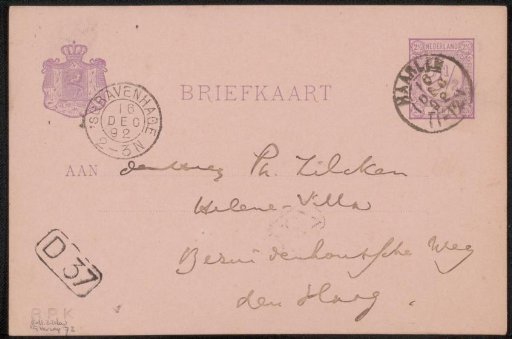 NEDERLAND
BRIEFKAART
HAARLEM
'S GRAVENHAGE
16
DEC
92
2-3N
AAN den Heer Ph. Zilcken
Helene-Villa
Bezuidenhoutsche Weg
den Haag.
D 37
R.P.K.